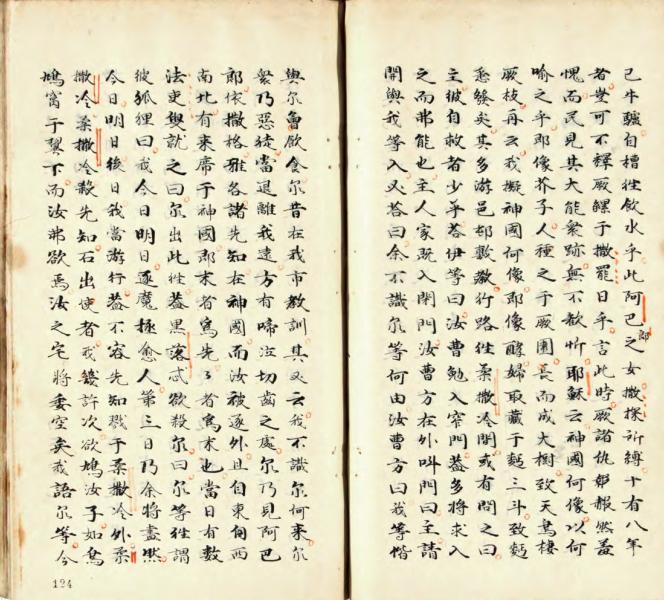 己牛驢自槽徃飲水乎此阿巴郎之女撒探所縛十有八年
者豈可不釋厥縲于撒罷日乎言此時厥諸仇赧然羞
愧而民見其大能衆跡無不歡忻耶穌云神國何像以何
喻之乎即像芥子人種之于厥園長而成大樹致天鳥棲
厥枝再云我擬神國何像耶像酵婦取藏于麪三斗致麪
悉發矣其多游邑邨數教行路徃柔撒冷間或有問之曰
主彼自救者少乎荅伊等曰汝曹勉入窄門蓋多將求入
之而弗能也主人家既入閉門汝曹方在外呌門曰主請
開與我等入乂荅曰余不識尔等何由汝曹方曰我等偕
與尔曾飲食尔昔在我市教訓其乂云我不識尔何來尔
衆乃惡徒當退離我遠方有啼泣切齒之處尔乃見阿巴
郎依撒格雅各諸先知在神國而汝被逐外且自東自西
南北有来席于神國即末者爲先先者爲末也當日有數
法吏就之曰尔出此徃蓋黑落忒欲殺尔曰尔等徃謂
彼狐狸曰我今日明日逐魔極愈人第三日乃余將盡然
今日明日後日我當游行蓋不容先知戮于柔撒冷外柔
撒冷柔撒冷殺先知石出使者我幾許次欲鳩汝子如鳥
鳩窩于翼下而汝弗欲焉汝之宅將委空矣我語尔等今
124